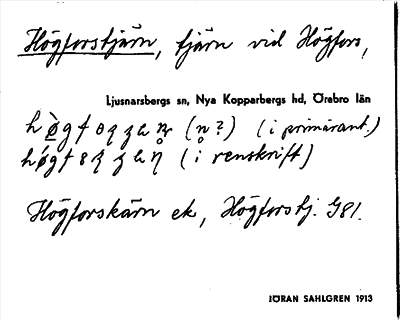 Högforstjärn, tjärn vid Högfors,
Ljusnarsbergs sn, Nya Kopparbergs hd, Örebro län
(i primärant.)
(i renskrift)
Högforskärn ek, Högforstj. G81.
JÖRAN SAHLGREN 1913